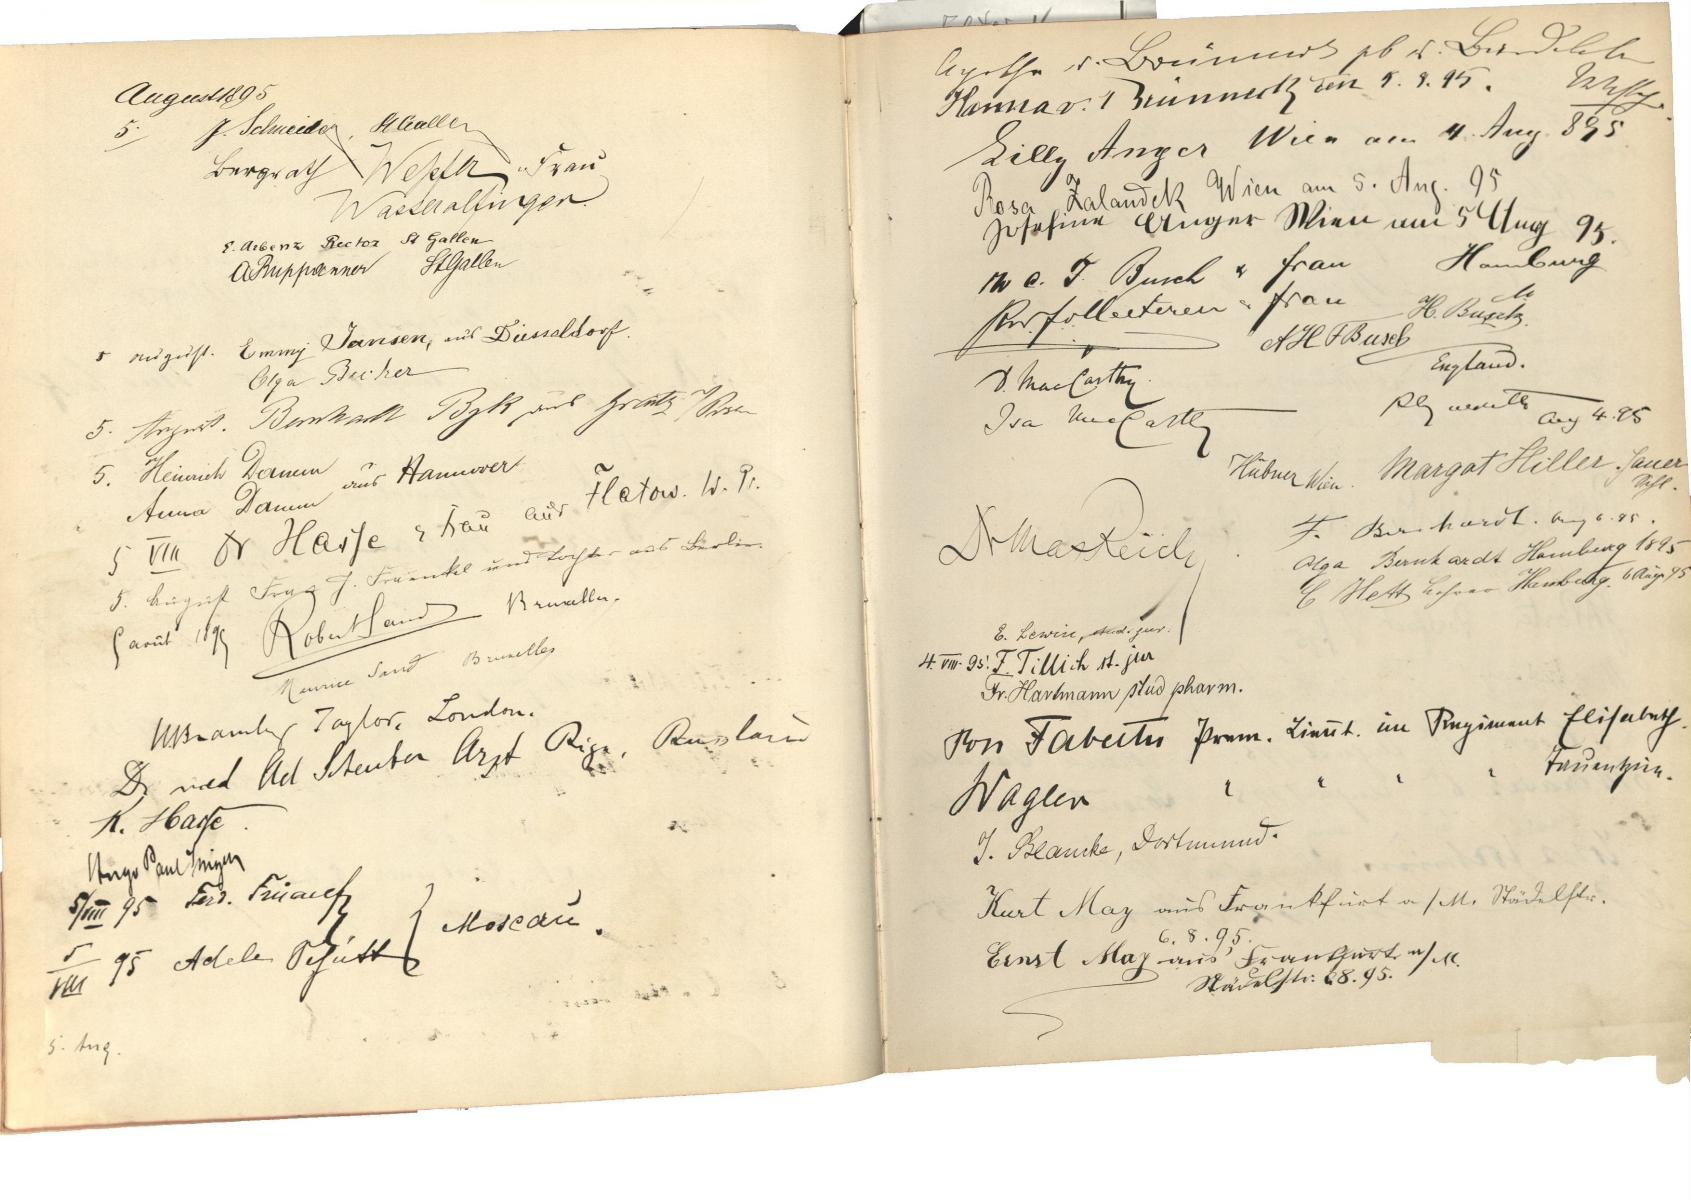 August 1895
5. J. Schneider, St Gallen
Bergrath Wepfer u Frau
Wasseralfingen
E. Arbenz Rector St Gallen
A Ruppanner St Gallen
5 August. Emmy Jansen, aus Düsseldorf.
Olga Becker
5. August. Bernhardt Byk aus Grätz
5. Heinrich Damm
Anna Damm aus Hannover
5 VIII Dr Hasse & Frau aus Flatow. W. Pr.
5. August Frau J. Fraenkel und Tochter aus Berlin.
5 août 1895 Robert Sand Bruxelles.
Maurice Sand Bruxelles
Taylor, London.
Dr med Ad Arzt Riga, Russland
K. Hasse.
Hugo Paul
5/VIII 95 Ferd.
5/VIII 95 Adele
Moscau.
5. Aug.
Agathe v.
Hanna v. Brünneck den 5. 8. 95.
Lilly Anger Wien am 4. Aug. 895
Rosa Zalaudek Wien am 5. Aug. 95
Josefine Anger Wien am 5 Aug 95.
M. C. T. Busch & Frau Hamburg
& Frau H. Busch
A H F Busch
D. MacCarthy.
England.
Isa MacCarthy
Aug 4. 95
Hübner Wien. Margot Hiller. Jauer
Schl.
Dr Max Reich
F. Bernhardt. Aug 6. 95.
Olga Bernhardt Hamburg 1895
C Hett Lehrer Hamburg. 6 Aug. 95
E. Lewin, stud. jur.
4. VIII. 95. F. Tillich st. jur
Fr. Hartmann stud pharm.
Von Prem. Lieut. im Regiment Elisabeth.
Wagler " " " "
J. Blancke, Dortmund.
Kurt May aus Frankfurt a/M. Städelstr.
6. 8. 95.
Ernst May aus Frankfurt a/M.
Städelstr. 6 8. 95.